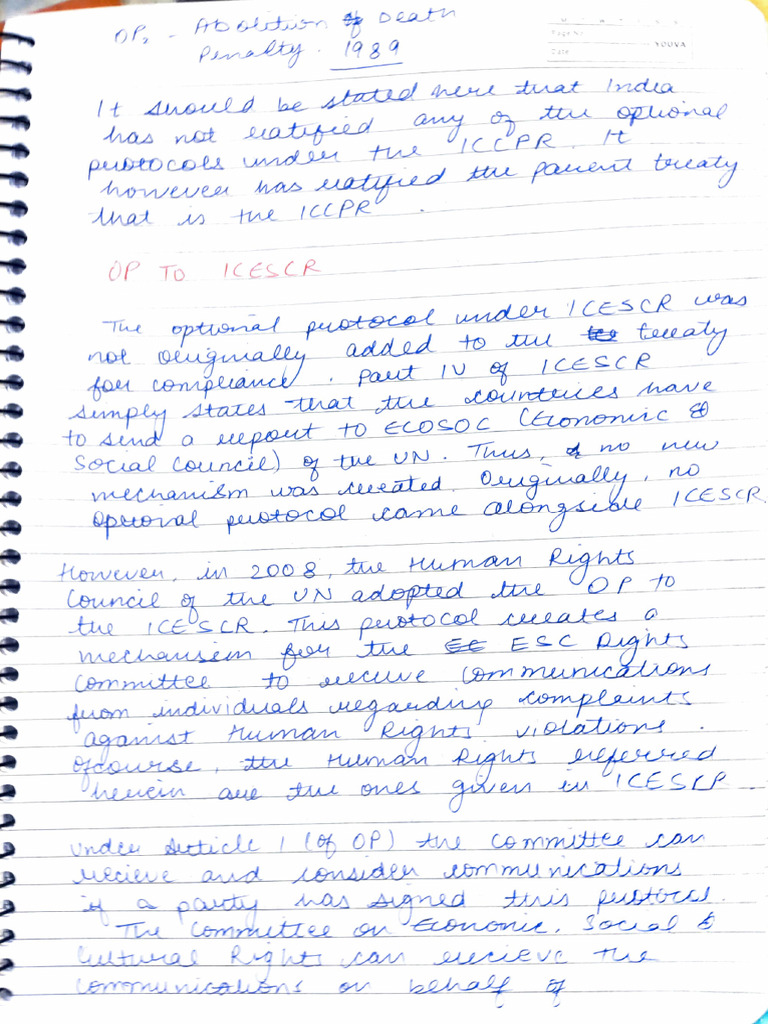 OP₂ - Abolition of Death
Penalty. 1989
Page No.
Date
YOUVA
It should be stated here that India
has not ratified any of the optional
protocols under the ICCPR. It
however has ratified the parent treaty
that is the ICCPR.
OP TO ICESCR
The optional protocol under ICESCR was
not originally added to the treaty
for compliance. Part IV of ICESCR
simply states that the countries have
to send a report to ECOSOC (Economic &
Social Council) of the UN. Thus, no new
mechanism was created. Originally, no
optional protocol came alongside ICESCR.
However, in 2008, the Human Rights
Council of the UN adopted the OP to
the ICESCR. This protocol creates a
mechanism for the ESC Rights
Committee to receive communications
from individuals regarding complaints
against Human Rights violations.
Ofcourse, the Human Rights referred
herein are the ones given in ICESCR
Under Article 1 (of OP) the Committee can
recieve and consider communications
if a party has signed this protocol.
The Committee on Economic, Social &
Cultural Rights can recieve the
communications on behalf of